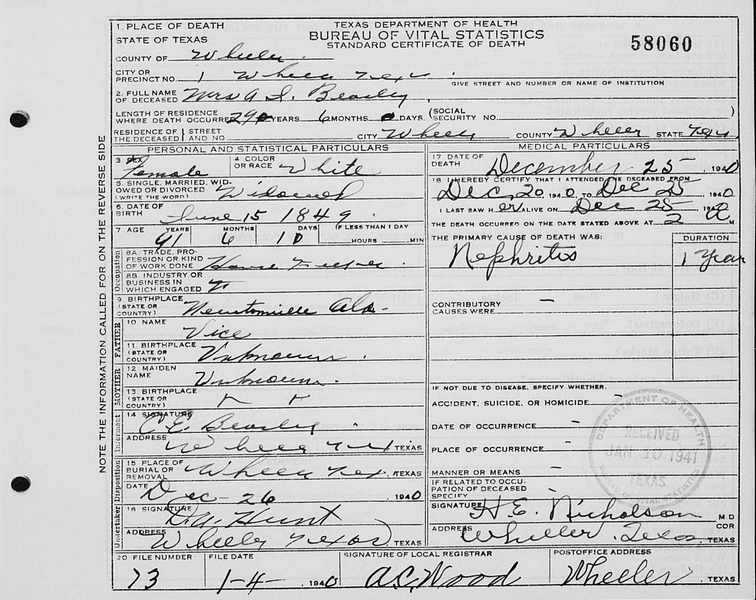 TEXAS DEPARTMENT OF HEALTH
BUREAU OF VITAL STATISTICS
STANDARD CERTIFICATE OF DEATH
58060
1. PLACE OF DEATH
STATE OF TEXAS
COUNTY OF Wheeler
CITY OR PRECINCT NO. 1 Wheeler Texas
GIVE STREET AND NUMBER OR NAME OF INSTITUTION
2. FULL NAME OF DECEASED Mrs A. I. Beasley
LENGTH OF RESIDENCE WHERE DEATH OCCURRED 29 YEARS 6 MONTHS 0 DAYS (SOCIAL SECURITY NO.
RESIDENCE OF THE DECEASED STREET AND NO. CITY Wheeler COUNTY Wheeler STATE Texas
PERSONAL AND STATISTICAL PARTICULARS
3. SEX Female
4. COLOR OR RACE White
5. SINGLE, MARRIED, WIDOWED OR DIVORCED (WRITE THE WORD) Widowed
6. DATE OF BIRTH June 15 1849
7. AGE YEARS MONTHS DAYS IF LESS THAN 1 DAY
91 6 10 HOURS MIN
Occupation
8A. TRADE, PROFESSION OR KIND OF WORK DONE House Keeper
8B. INDUSTRY OR BUSINESS IN WHICH ENGAGED
9. BIRTHPLACE (STATE OR COUNTRY) Newtonville Ala.
FATHER
10 NAME Vice
11. BIRTHPLACE (STATE OR COUNTRY) Unknown
MOTHER
12. MAIDEN NAME Unknown
13. BIRTHPLACE (STATE OR COUNTRY)
Informant
14 SIGNATURE C. E. Beasley
ADDRESS Wheeler Tex TEXAS
Disposition
15. PLACE OF BURIAL OR REMOVAL Wheeler Tex. TEXAS
DATE Dec-26 1940
Undertaker
16 SIGNATURE D. A. Hunt
ADDRESS Wheeler Texas TEXAS
MEDICAL PARTICULARS
17 DATE OF DEATH December-25 1940
18 I HEREBY CERTIFY THAT I ATTENDED THE DECEASED FROM
Dec, 20 1940 TO Dec 25 1940
I LAST SAW HER ALIVE ON Dec 25 1940
THE DEATH OCCURRED ON THE DATE STATED ABOVE AT 2 A M
THE PRIMARY CAUSE OF DEATH WAS: DURATION
Nephritis 1 Year
CONTRIBUTORY CAUSES WERE -
IF NOT DUE TO DISEASE, SPECIFY WHETHER.
ACCIDENT, SUICIDE, OR HOMICIDE -
DATE OF OCCURRENCE -
PLACE OF OCCURRENCE -
MANNER OR MEANS -
IF RELATED TO OCCUPATION OF DECEASED SPECIFY -
SIGNATURE H. E. Nicholson M D COR
ADDRESS Wheeler, Texas TEXAS
DEPARTMENT OF HEALTH
RECEIVED
JAN 10 1941
TEXAS
20 FILE NUMBER FILE DATE SIGNATURE OF LOCAL REGISTRAR POSTOFFICE ADDRESS
73 1-4- 1940 A.C. Wood Wheeler TEXAS
NOTE THE INFORMATION CALLED FOR ON THE REVERSE SIDE